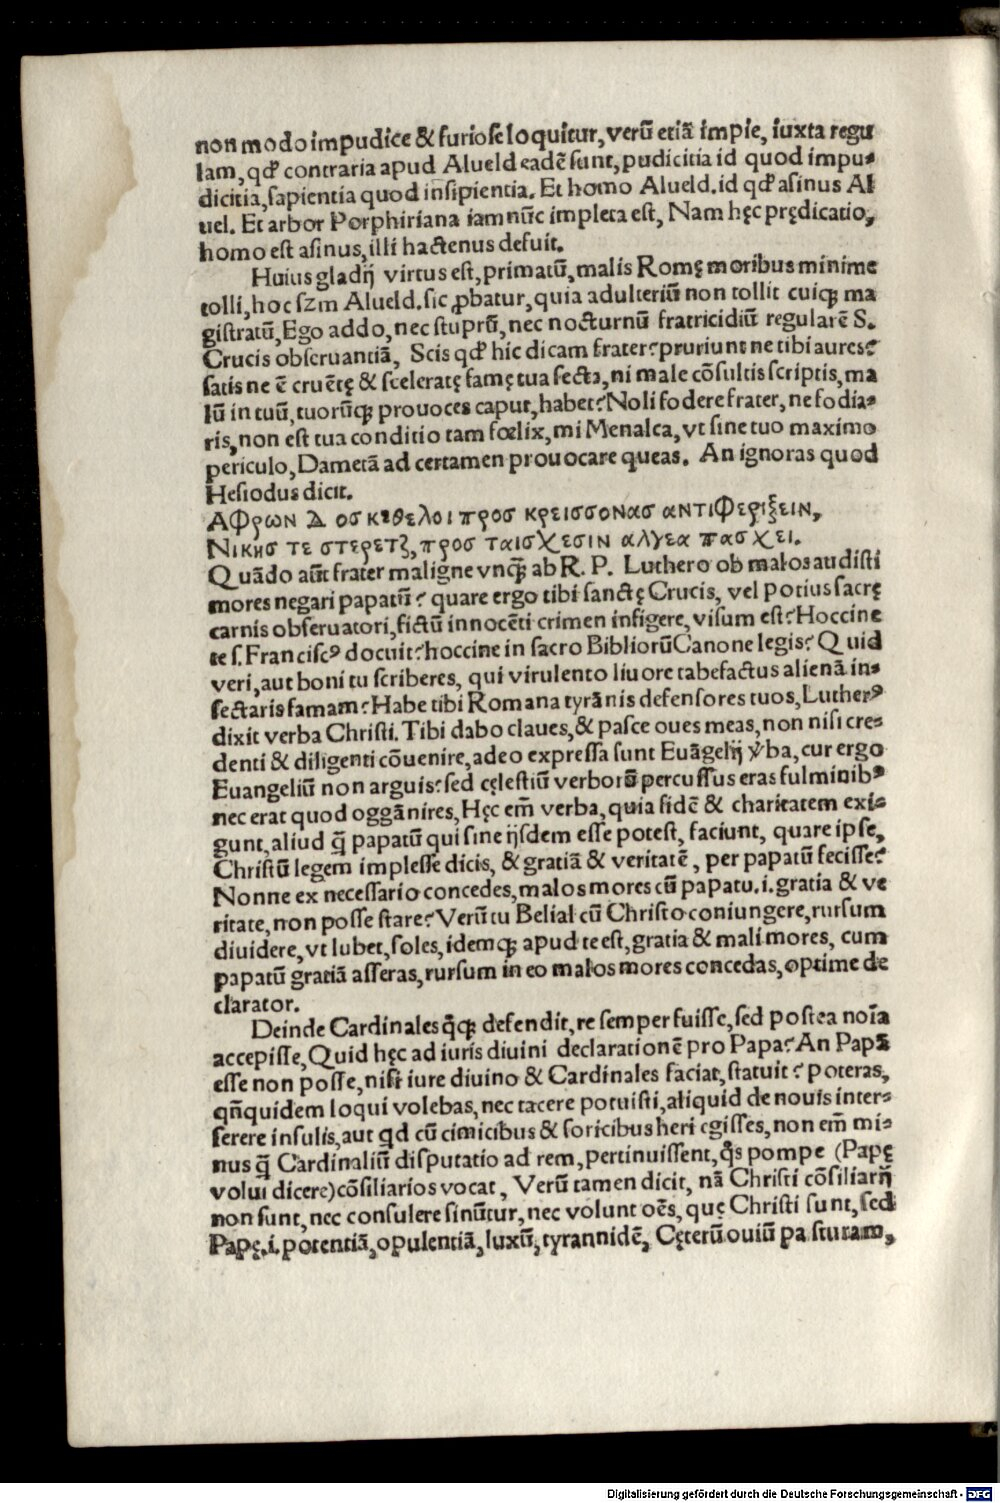 non modo impudice & furiose loquitur, verū etiā impie, iuxta regu
lam, qđ contraria apud Alueld eadē sunt, pudicitia id quod impu-
dicitia, sapientia quod insipientia. Et homo Alueld. id qđ asinus Al
uel. Et arbor Porphiriana iam nūc impleta est, Nam hęc prędicatio,
homo est asinus, illi hactenus defuit.
Huius gladij virtus est, primatū, malis Romę moribus minime
tolli, hoc szm Alueld. sic ꝓbatur, quia adulteriū non tollit cuiqꝫ ma
gistratū, Ego addo, nec stuprū, nec nocturnū fratricidiū regularē S.
Crucis obseruantiā, Scis qđ hic dicam frater? pruriunt ne tibi aures?
satis ne ē cruētę & sceleratę famę tua secta, ni male cōsultis scriptis, ma
lū in tuū, tuorūqꝫ prouoces caput, habet? Noli fodere frater, ne fodia-
ris, non est tua conditio tam fœlix, mi Menalca, vt sine tuo maximo
periculo, Dametā ad certamen prouocare queas. An ignoras quod
Hesiodus dicit.
ΑΦρων Δ οσ κιθελοι προσ κρεισσονασ αντιΦεριξειν,
Νικησ τε στερετζ, προσ ταισχεσιν αλγεα πασχει.
Quādo aūt frater maligne vnqꝫ̄ ab R. P. Luthero ob malos audisti
mores negari papatū? quare ergo tibi sanctę Crucis, vel potius sacrę
carnis obseruatori, fictū innocēti crimen infigere, visum est? Hoccine
te s. Franciscꝰ docuit? hoccine in sacro Bibliorū Canone legis? Quid
veri, aut boni tu scriberes, qui virulento liuore tabefactus alienā in-
sectaris famam? Habe tibi Romana tyrānis defensores tuos, Lutherꝰ
dixit verba Christi. Tibi dabo claues, & pasce oues meas, non nisi cre-
denti & diligenti cōuenire, adeo expressa sunt Euāgelij v̄ba, cur ergo
Euangeliū non arguis? sed cęlestiū verborū percussus eras fulminibꝰ
nec erat quod oggānires, Hęc em̄ verba, quia fidē & charitatem exi-
gunt, aliud q̄ papatū qui sine ijsdem esse potest, faciunt, quare ipse,
Christū legem implesse dicis, & gratiā & veritatē, per papatū fecisse?
Nonne ex necessario concedes, malos mores cū papatu. i. gratia & ve
ritate, non posse stare? Verū tu Belial cū Christo coniungere, rursum
diuidere, vt lubet, soles, idemqꝫ apud te est, gratia & mali mores, cum
papatū gratiā asseras, rursum in eo malos mores concedas, optime de
clarator.
Deinde Cardinales q̄qꝫ defendit, re semper fuisse, sed postea noīa
accepisse, Quid hęc ad iuris diuini declarationē pro Papa? An Papā
esse non posse, nisi iure diuino & Cardinales faciat, statuit? poteras,
qn̄quidem loqui volebas, nec tacere potuisti, aliquid de nouis inter-
serere insulis, aut qd cū cimicibus & soricibus heri egisses, non em̄ mi-
nus q̄ Cardinaliū disputatio ad rem, pertinuissent, q̊s pompe (Papę
volui dicere) cōsiliarios vocat, Verū tamen dicit, nā Christi cōsiliarij
non sunt, nec consulere sinūtur, nec volunt oēs, quę Christi sunt, sed
Papę. i. potentiā, opulentiā, luxū, tyrannidē, Cęterū ouiū pasturam,
Digitalisierung gefördert durch die Deutsche Forschungsgemeinschaft - DFG